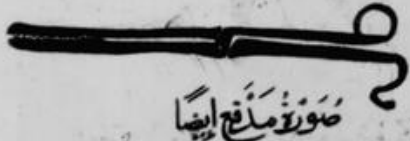 صُورَةُ مَدْفَع اَيضًا